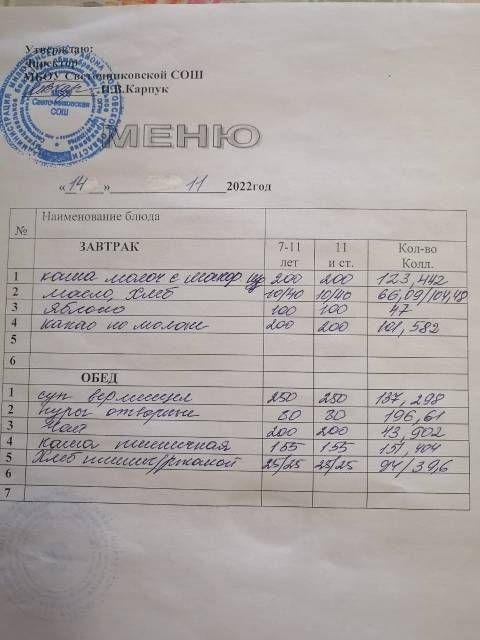 Утверждаю:
Директор
МБОУ Светочниковской СОШ
Н.В.Карпук
МЕНЮ
«14» 11 2022год
№ Наименование блюда
ЗАВТРАК 7-11 лет 11 и ст. Кол-во Колл.
1 каша молоч с макар изд 200 200 123,442
2 масло, хлеб 10/40 10/40 66,09/104,48
3 яблоко 100 100 47
4 какао на молоке 200 200 101,582
5
6
ОБЕД
1 суп вермишел 250 250 137,298
2 куры отварные 80 80 196,61
3 Чай 200 200 43,902
4 каша пшеничная 155 155 151,404
5 Хлеб пшенич/ржаной 25/25 25/25 94/39,6
6
7